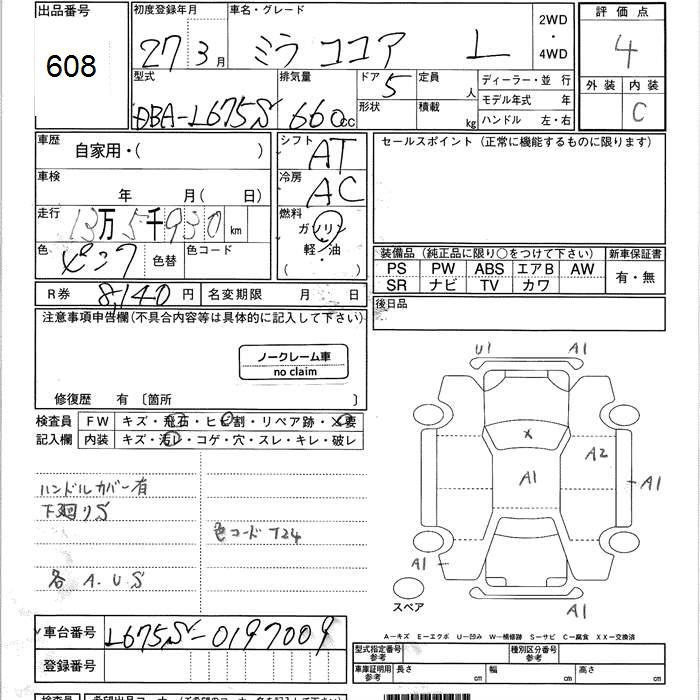 出品番号
608
初度登録年月
27年3月
車名・グレード
ミラ ココア L
2WD
・
4WD
評価点
4
外装 内装
C
型式
DBA-L675S
排気量
660cc
ドア 5
形状
定員 人
積載 kg
ディーラー・並 行
モデル年式 年
ハンドル 左・右
車歴
自家用・( )
車検
年 月( 日)
走行 13万5千930km
色 ピンク 色替 色コード
シフト
AT
冷房
AC
燃料
ガソリン
軽・油
( )
R券 8,140円 名変期限 月 日
セールスポイント (正常に機能するものに限ります)
装備品 (純正品に限り○をつけて下さい) 新車保証書
PS PW ABS エアB AW 有・無
SR ナビ TV カワ
後日品
注意事項申告欄(不具合内容等は具体的に記入して下さい)
ノークレーム車
no claim
修復歴 有 〔箇所 〕
検査員
記入欄
FW キズ・飛石・ヒビ割・リペア跡・X要
内装 キズ・汚レ・コゲ・穴・スレ・キレ・破レ
ハンドルカバー有
下廻りS
色コード T24
各 A.U.S
U1 A1
X
A2
A1
A1
A1
A1
スペア
A-キズ E-エクボ U-凹み W-補修跡 S-サビ C-腐食 XX-交換済
車台番号 L675S-0197009
登録番号
型式指定番号
参考
種別区分番号
参考
車庫証明用
参考
長さ cm 幅 cm 高さ cm